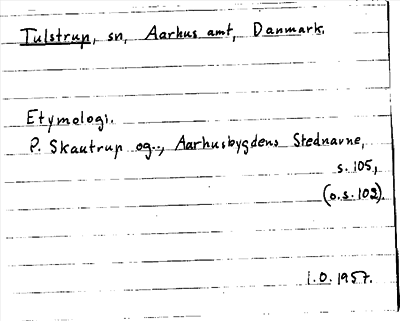 Tulstrup, sn, Aarhus amt, Danmark.
Etymologi.
P. Skautrup og.., Aarhusbygdens Stednavne,
s. 105,
(o.s. 102).
I.O. 1957.